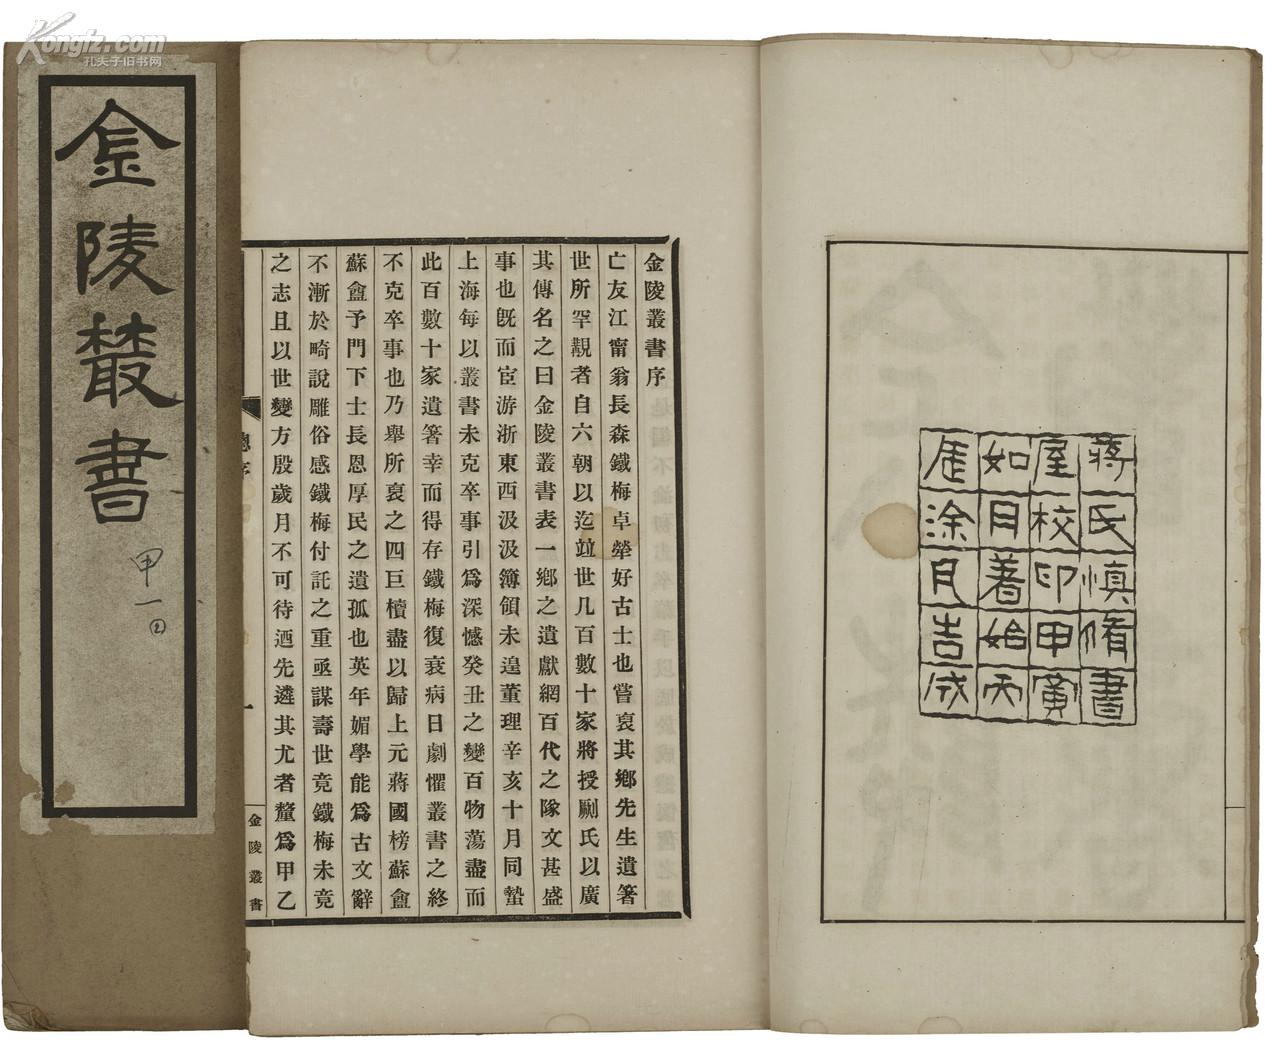 Kongfz.com
孔夫子旧书网
蔣氏慎脩書
屋校印甲寅
如月著始丙
辰涂月吉成
金陵叢書序
亡友江甯翁長森鐵梅卓犖好古士也嘗裒其鄉先生遺箸
世所罕覯者自六朝以迄竝世凡百數十家將授劂氏以廣
其傳名之曰金陵叢書表一鄉之遺獻網百代之隊文甚盛
事也旣而宦游浙東西汲汲簿領未遑董理辛亥十月同蟄
上海每以叢書未克卒事引爲深憾癸丑之變百物蕩盡而
此百數十家遺箸幸而得存鐵梅復衰病日劇懼叢書之終
不克卒事也乃舉所裒之四巨櫝盡以歸上元蔣國榜蘇盦
蘇盦予門下士長恩厚民之遺孤也英年媚學能爲古文辭
不漸於畸說雕俗感鐵梅付託之重亟謀壽世竟鐵梅未竟
之志且以世變方殷歲月不可待迺先遴其尤者釐爲甲乙
總序
一
金陵叢書
金陵叢書
甲一